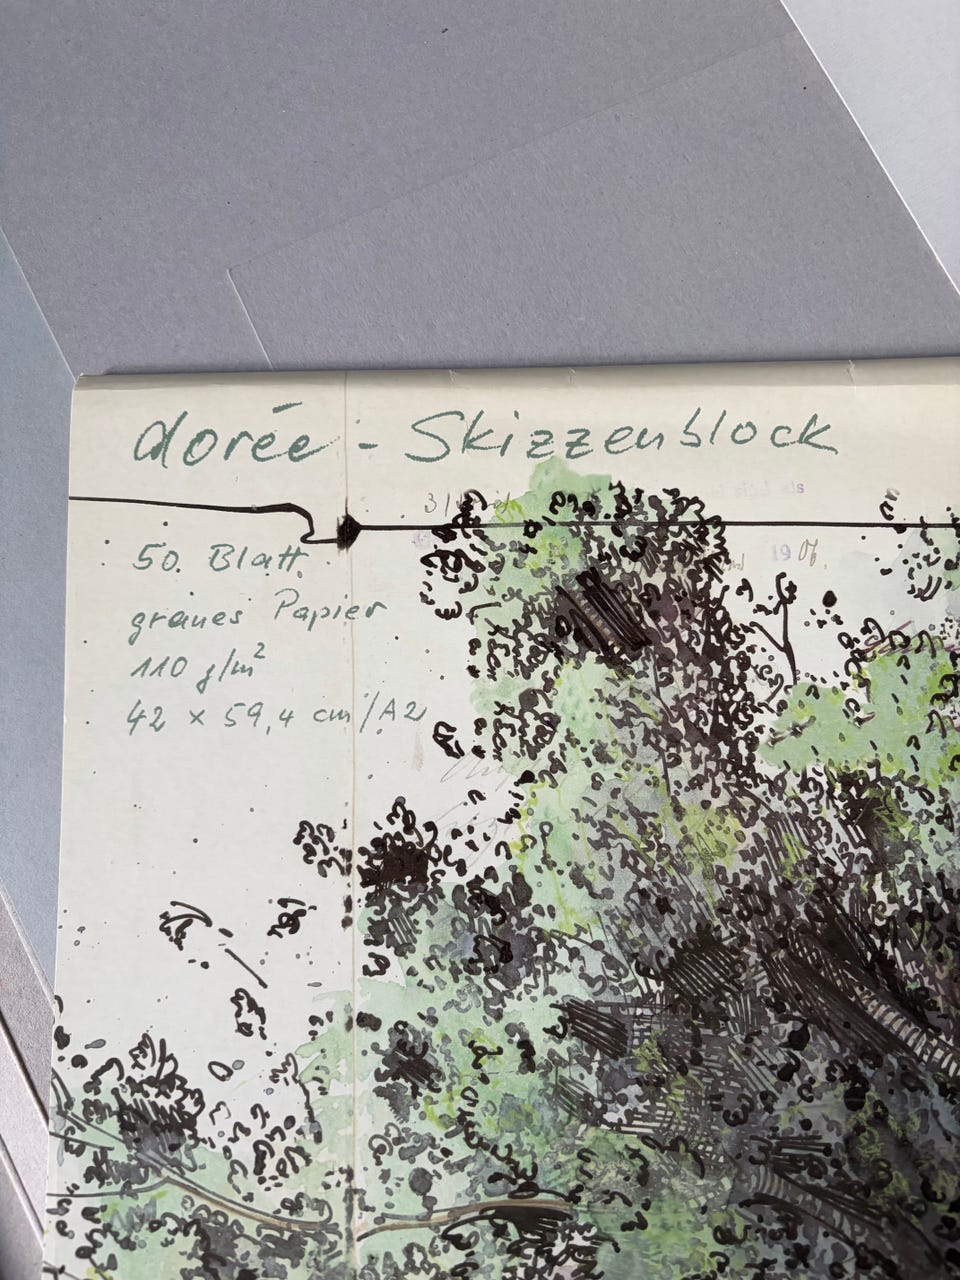 dorée - Skizzenblock
19 06.
50 Blatt
graues Papier
110 g/m²
42 x 59,4 cm/A2